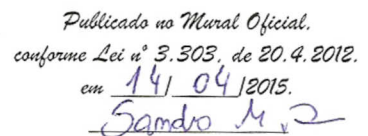 Publicado no Mural Oficial.
conforme Lei nº 3.303, de 20.4.2012.
em 14/ 04 /2015.
Sandro M.